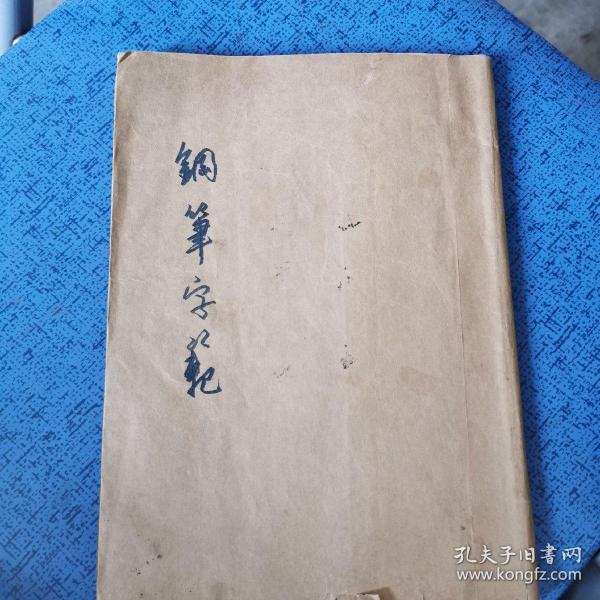 鋼筆字範
孔夫子旧書网
www.kongfz.com